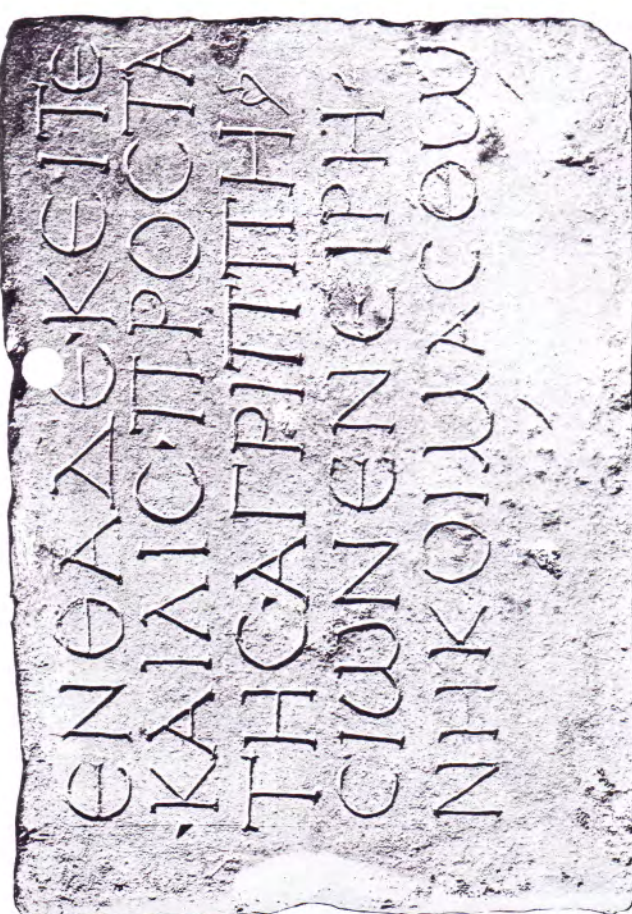 ΕΝΘΑΔΕ·ΚΕΙΤΕ
ΚΑΙΛΙϹ·ΠΡΟϹΤΑ
ΤΗϹ·ΑΓΡΙΠΠΗ
ϹΙωΝΕΝΕΙΡΗ
ΝΗΚΟΙΜΑϹΘω